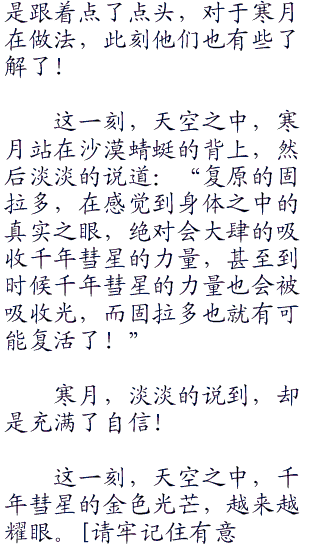 是跟着点了点头，对于寒月
在做法，此刻他们也有些了
解了！
这一刻，天空之中，寒
月站在沙漠蜻蜓的背上，然
后淡淡的说道：“复原的固
拉多，在感觉到身体之中的
真实之眼，绝对会大肆的吸
收千年彗星的力量，甚至到
时候千年彗星的力量也会被
吸收光，而固拉多也就有可
能复活了！”
寒月，淡淡的说到，却
是充满了自信！
这一刻，天空之中，千
年彗星的金色光芒，越来越
耀眼。[请牢记住有意